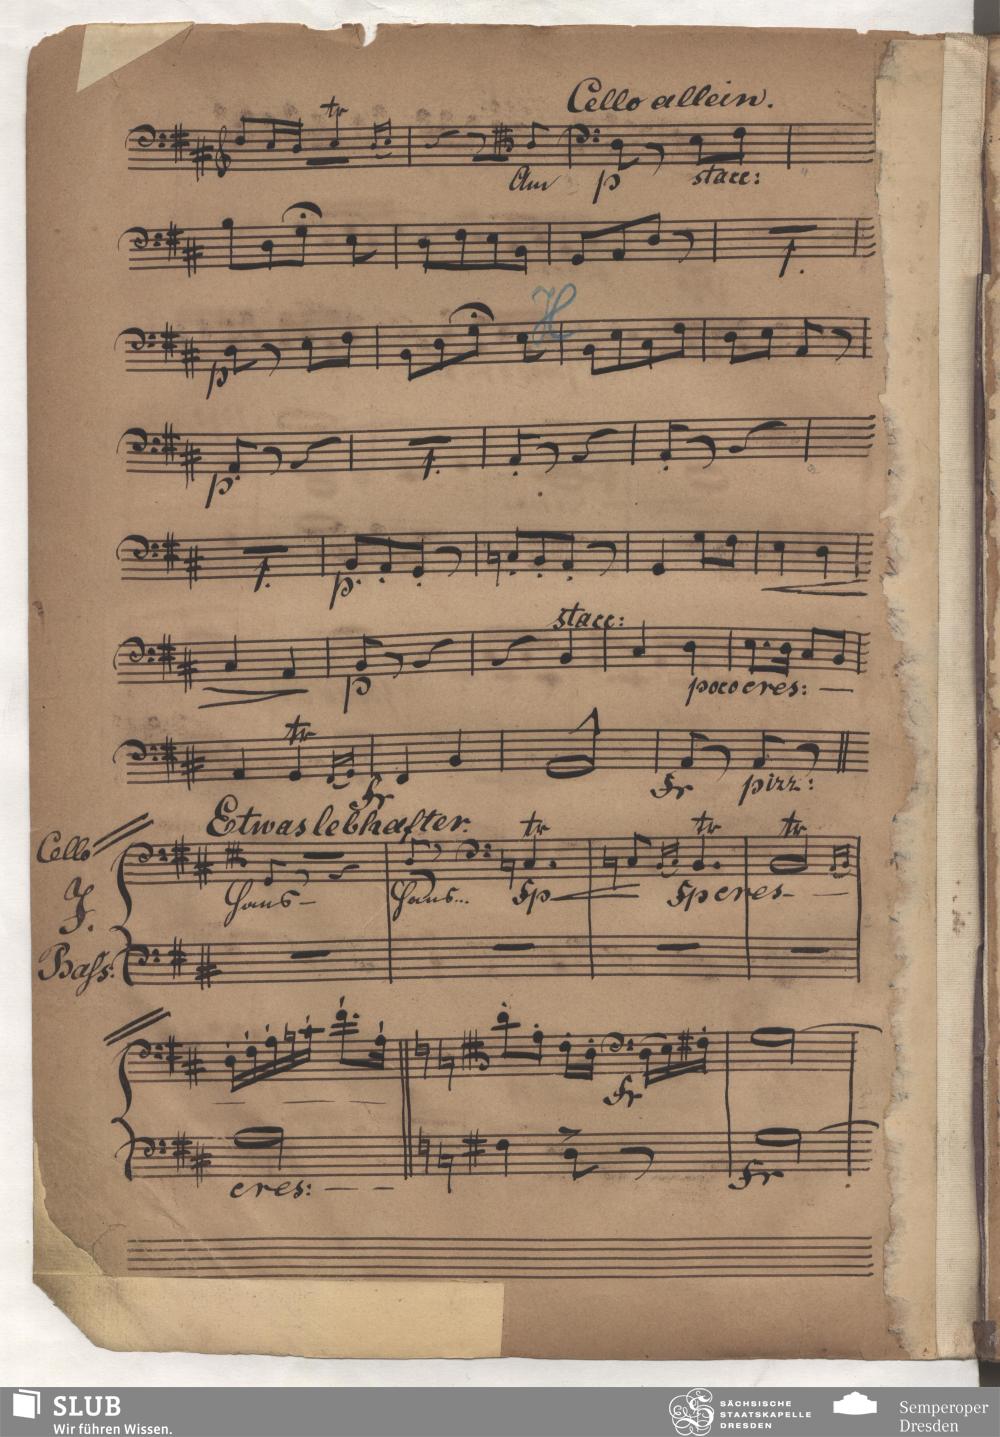 Cello allein.
tr
p stacc:
H
p
p
p
stacc:
p pococres:
tr
fr fr pizz:
Etwas lebhafter.
Cello tr tr tr
J. fp fp cres
Bass:
fr
cres: fr
SLUB
Wir führen Wissen.
SÄCHSISCHE
STAATSKAPELLE
DRESDEN
Semperoper
Dresden